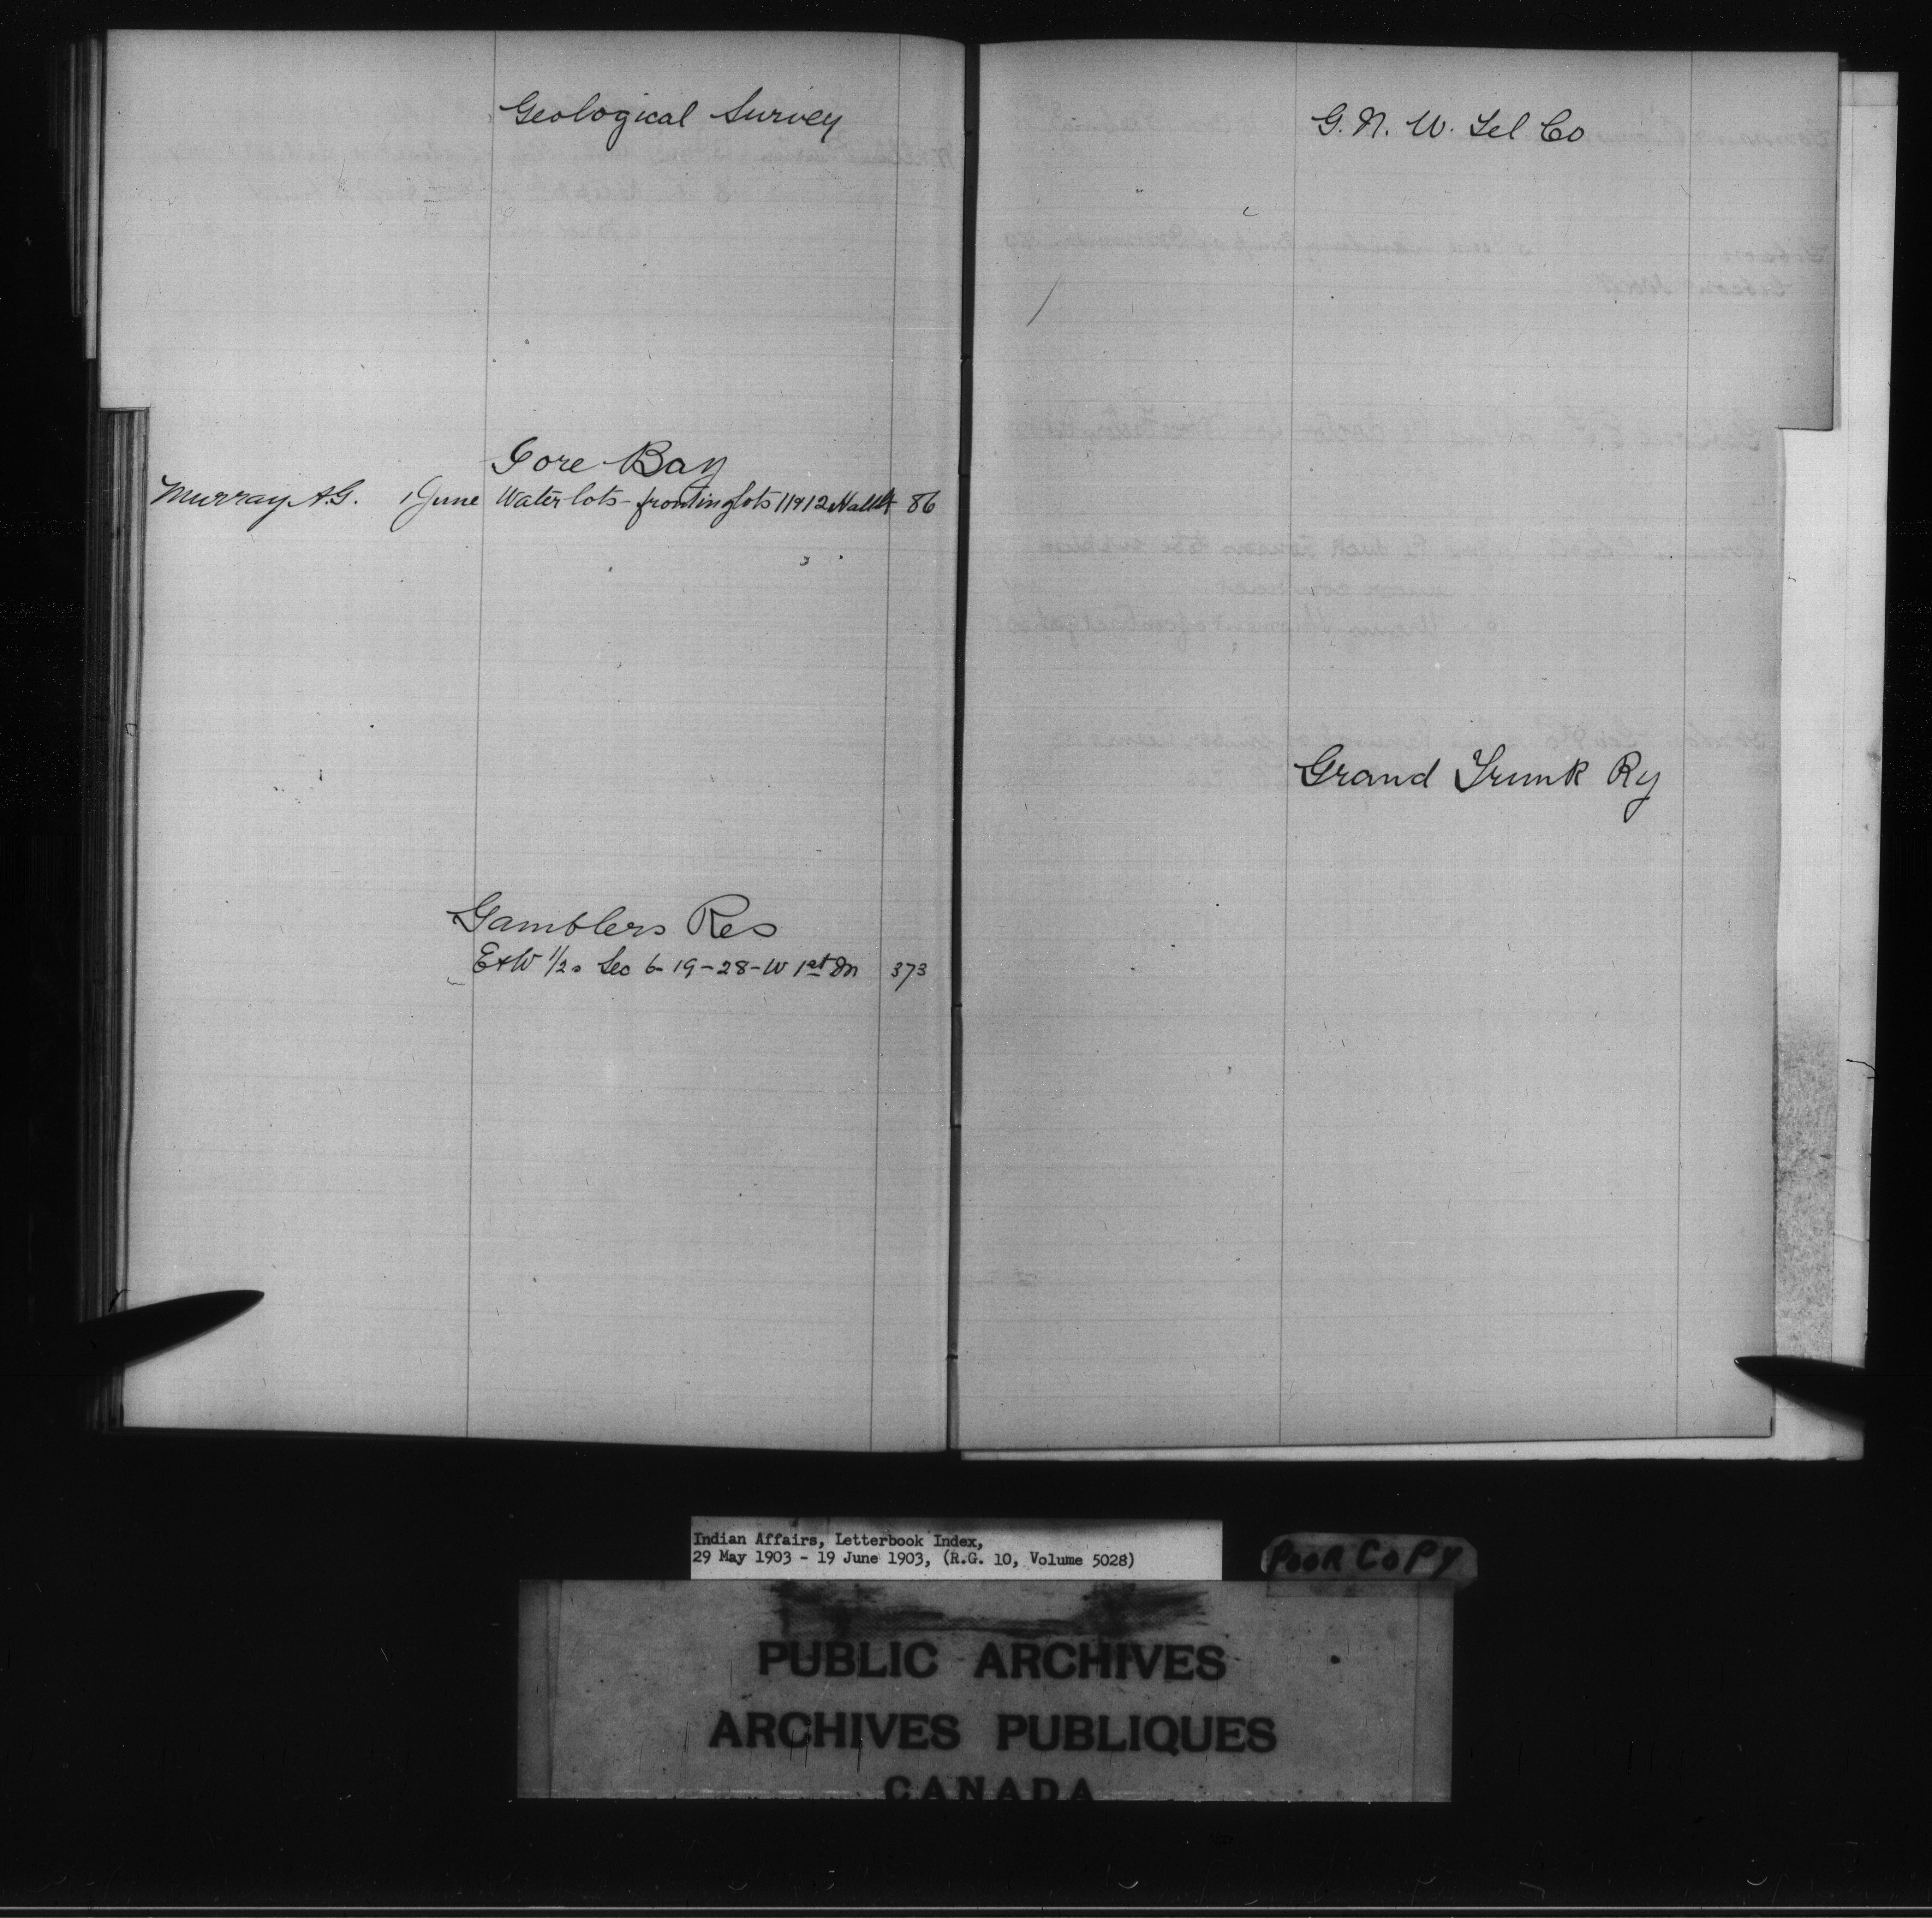 Geological Survey
Gore Bay
Murray A.G. 1 June Water lots - fronting lots 11 & 12 86
Gamblers Res
E & W 1/2s Sec 6 - 19 - 28 - W 1st M 373
G. N. W. Tel Co
Grand Trunk Ry
Indian Affairs, Letterbook Index,
29 May 1903 - 19 June 1903, (R.G. 10, Volume 5028)
POOR COPY
PUBLIC ARCHIVES
ARCHIVES PUBLIQUES
CANADA